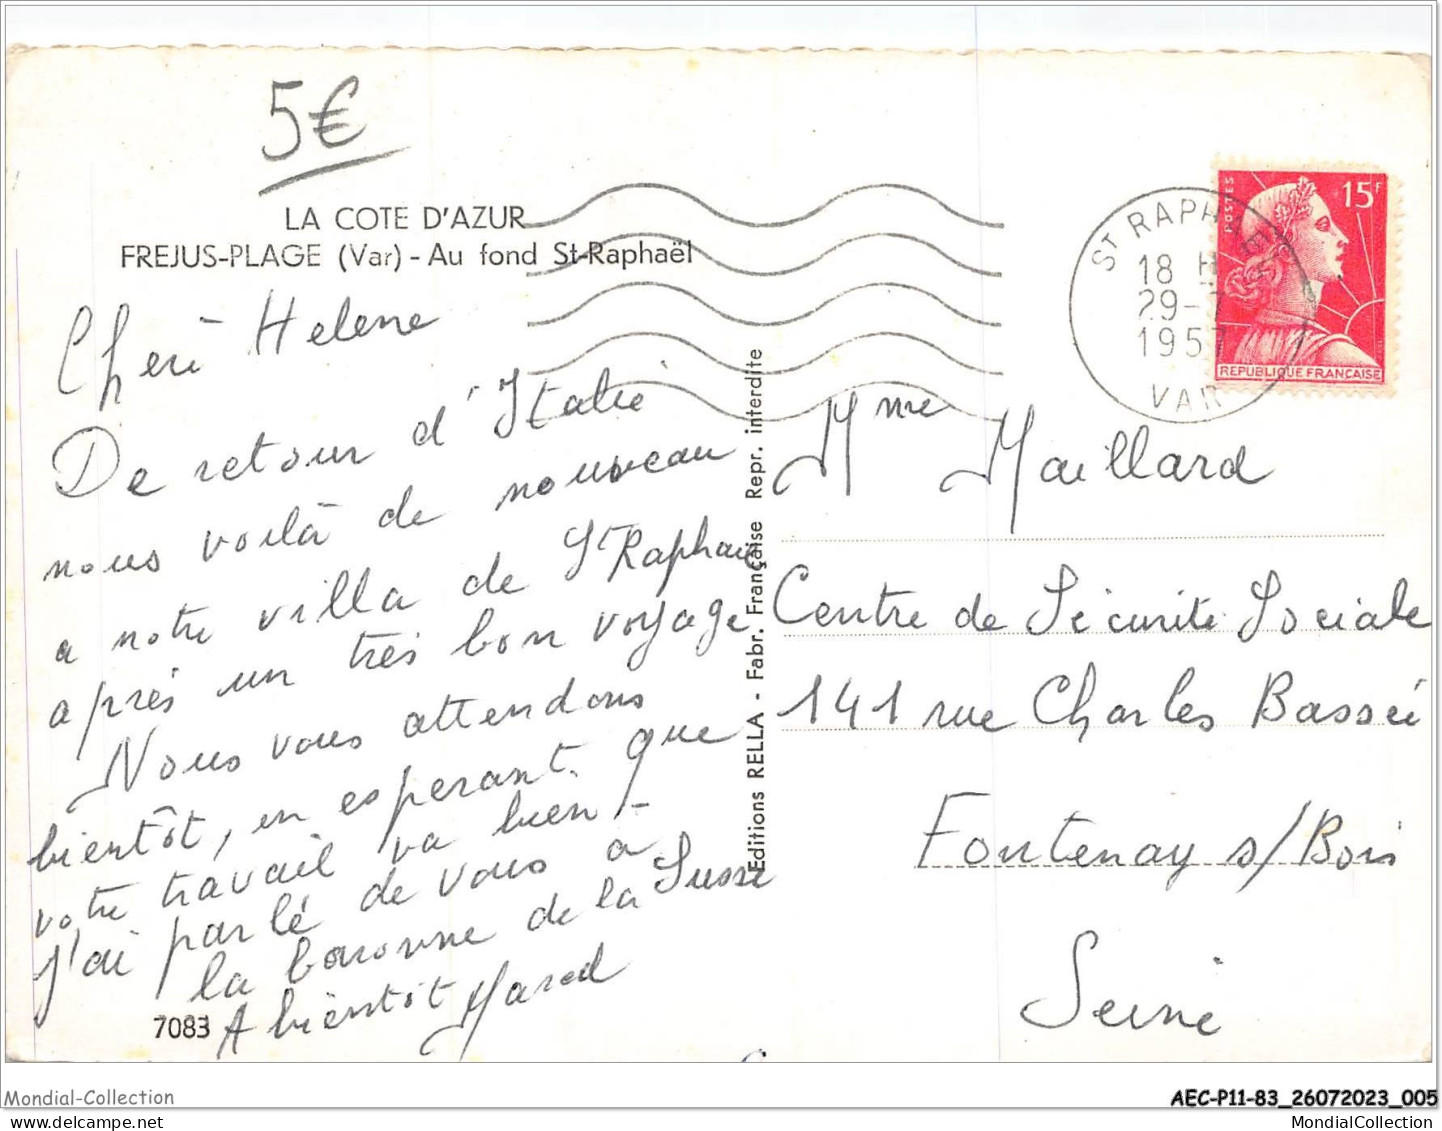 5€
LA COTE D'AZUR
FREJUS-PLAGE (Var) - Au fond St-Raphaël
Cheri Helene
De retour d'Italie
nous voilà de nouveau
a notre villa de St Raphael
après un très bon voyage
Nous vous attendons
bientôt, en esperant que
votre travail va bien -
J'ai parlé de vous a
la baronne de la
A bientôt
7083
Editions RELLA - Fabr. Française Repr. interdite
ST RAPHAEL
18 H
29-7
1957
VAR
POSTES
15F
REPUBLIQUE FRANÇAISE
Mme Maillard
Centre de Sécurité Sociale
141 rue Charles Bassée
Fontenay s/Bois
Seine
Mondial-Collection
AEC-P11-83_26072023_005
MondialCollection.net
MondialCollection